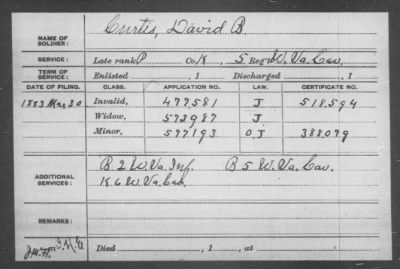 NAME OF SOLDIER: Curtis, David B.
SERVICE: Late rank P Co. K, 5 Reg't W. Va. Cav.
TERM OF SERVICE: Enlisted , 1 Discharged , 1
DATE OF FILING. CLASS. APPLICATION NO. LAW. CERTIFICATE NO.
1883 Mar 30 Invalid, 477581 J 518.594
Widow, 573987 J
Minor, 577193 O.J 388079
ADDITIONAL SERVICES: B 2 W. Va. Inf. B 5 W. Va. Cav.
K 6 W. Va. Cav.
REMARKS:
Died , 1 , at